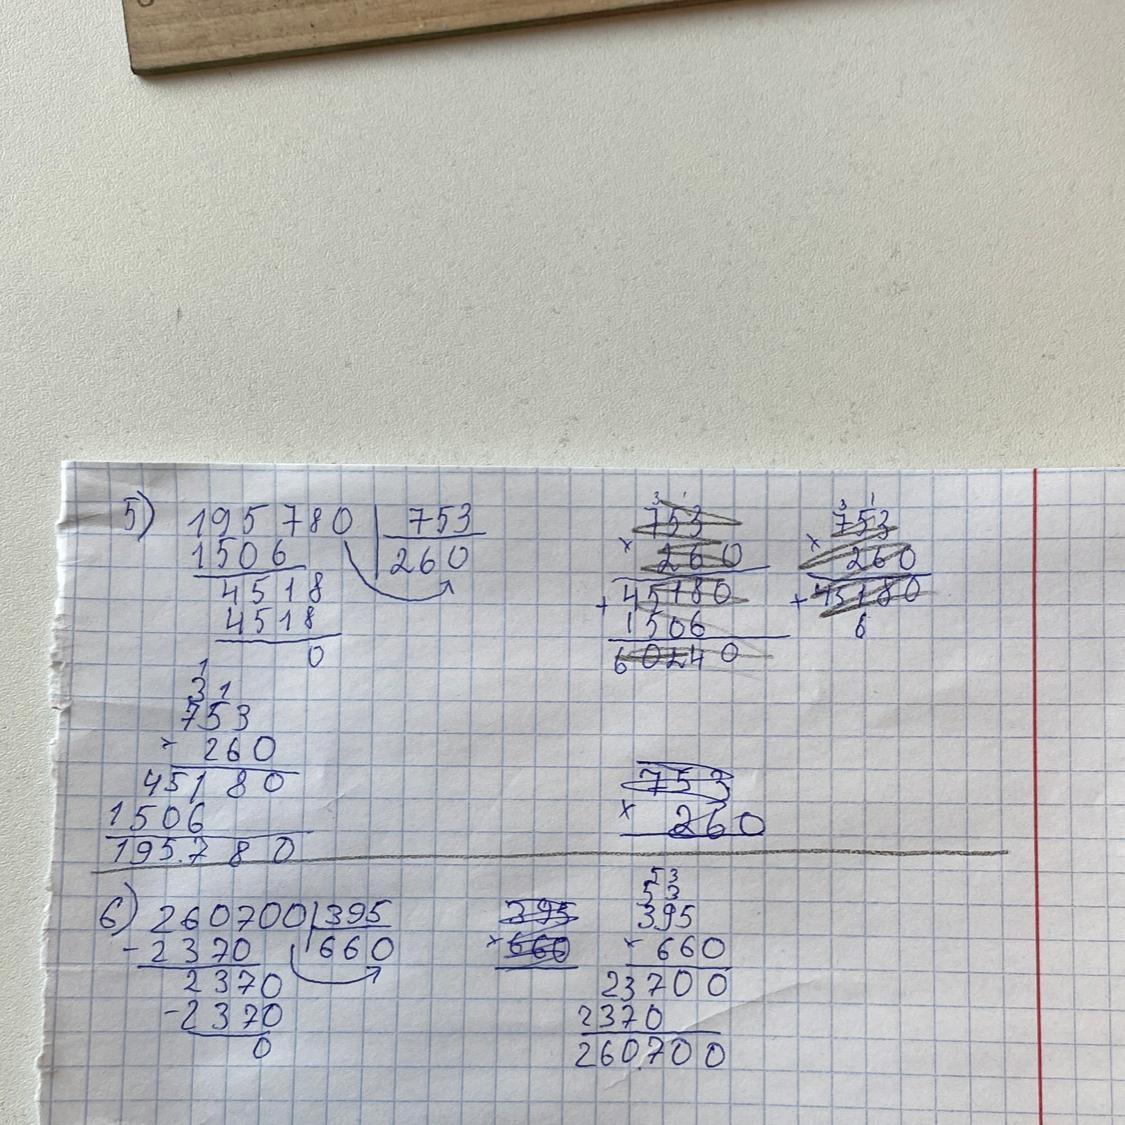 5) 195 780 | 753
1506 260
4518
4518
0
753
× 260
45180
1506
60240
753
× 260
45180
6
1
3 1
753
× 260
45180
1506
195780
753
× 260
6) 260700 | 395
- 2370 660
2370
- 2370
0
395
× 660
5 3
5 3
395
× 660
23700
2370
260700